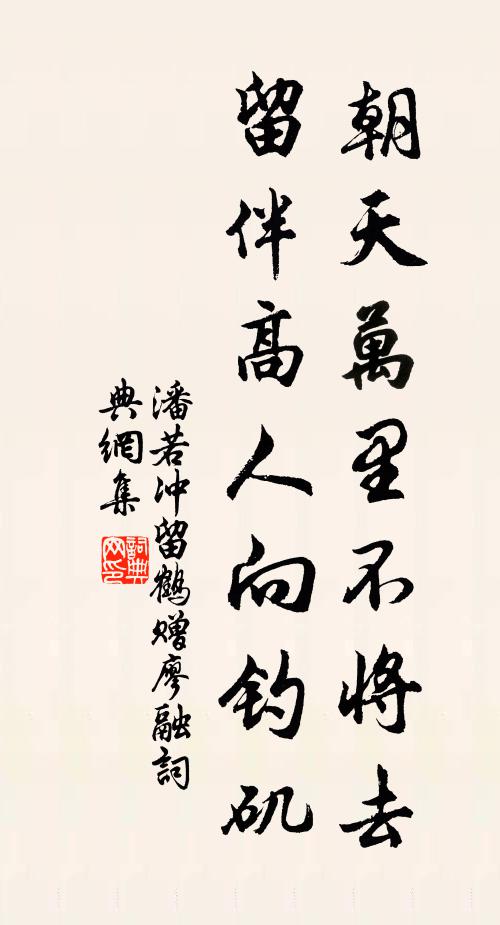 朝天萬里不將去
留伴高人向钓矶
潘若冲留鶴赠廖融詞
典網集
詞典网印